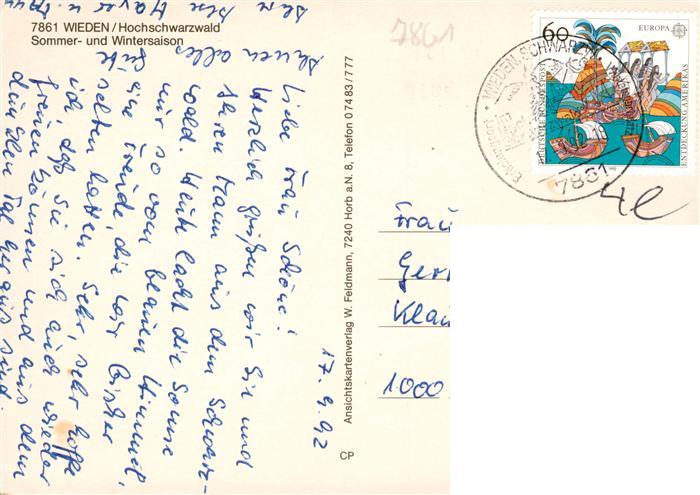 7861 WIEDEN / Hochschwarzwald
Sommer- und Wintersaison
17. 9. 92
Liebe Frau Schöne!
Herzlich grüßen wir Sie und
Ihren Mann aus dem Schwarz-
wald. Heute lacht die Sonne
nur so vom blauen Himmel,
eine Freude, die wir bisher
selten hatten. Sehr, sehr hoffe
ich, daß Sie sich auch wieder
freuen können und aus dem
dunklen Tal heraus sind.
Ihnen alles Gute
Ansichtskartenverlag W. Feldmann, 7240 Horb a.N. 8, Telefon 0 74 83 / 7 77
CP
7861
60
EUROPA
DEUTSCHE BUNDESPOST
ENTDECKUNG AMERIKAS
WIEDEN, SCHWARZW
7861
4e
Frau
Ger
Klau
1000